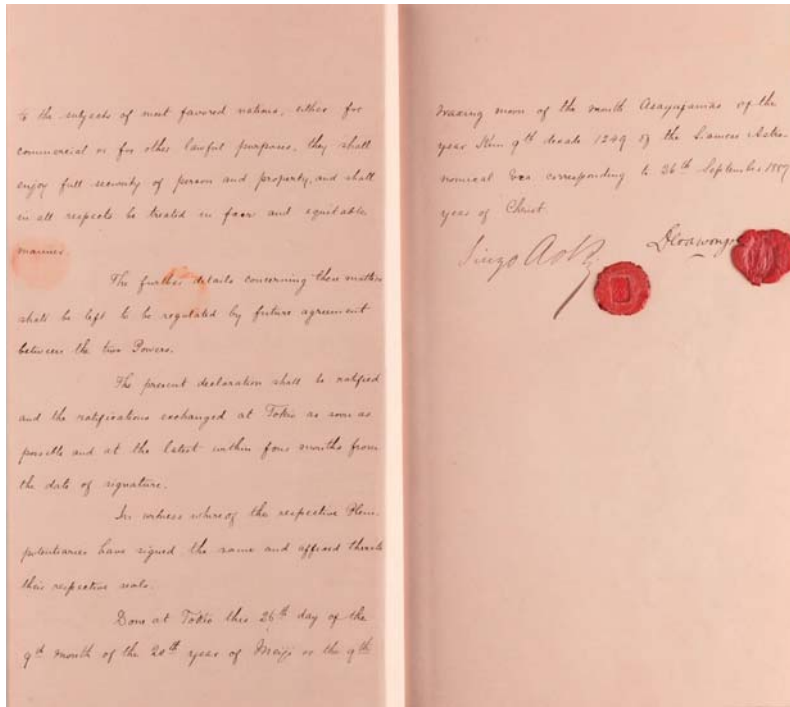 to the subjects of most favored nations, either for
commercial or for other lawful purposes, they shall
enjoy full security of person and property, and shall
in all respects be treated in fair and equitable
manner.
The further details concerning these matters
shall be left to be regulated by future agreement
between the two Powers.
The present declaration shall be ratified
and the ratifications exchanged at Tokio as soon as
possible and at the latest within four months from
the date of signature.
In witness whereof the respective Pleni-
potentiaries have signed the same and affixed thereto
their respective seals.
Done at Tokio this 26th day of the
9th month of the 20th year of Meiji or the 9th
waxing moon of the month Asayujamas of the
year Kun 9th decade 1249 of the Siamese Astro-
nomical Era corresponding to 26th September 1887
year of Christ.
Siuzo Aoki
Devawongse